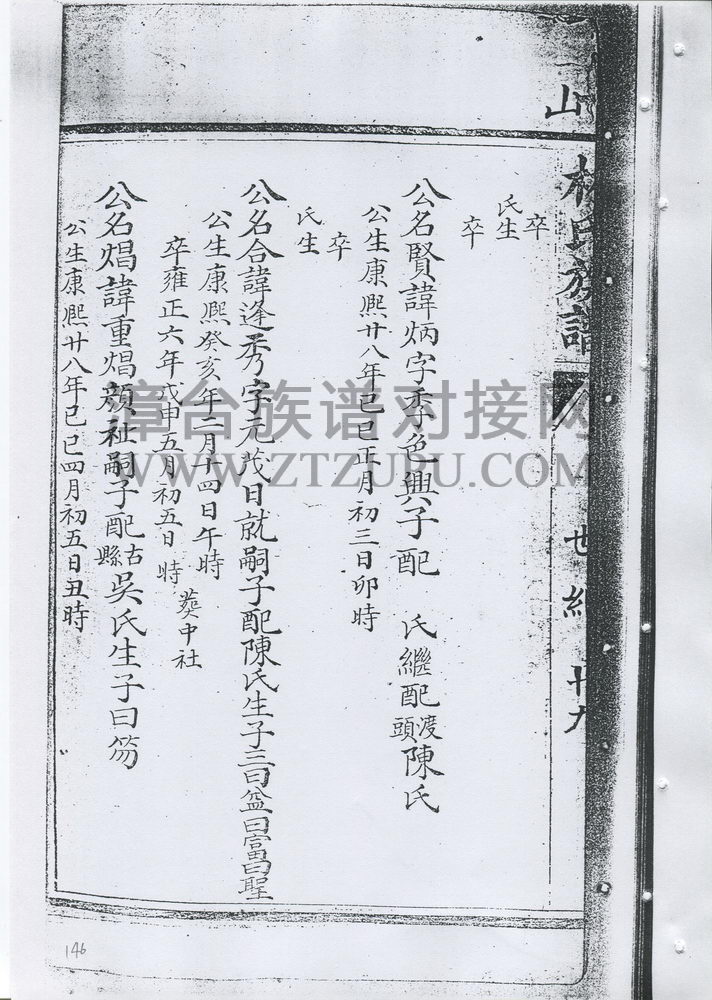 山
林氏族譜
世紀 廿九
卒
氏生
卒
公名賢諱炳字季色興子配 氏繼配渡頭陳氏
公生康熙廿八年己巳正月初三日卯時
卒
氏生
公名合諱逢秀字元茂日就嗣子配陳氏生子三曰益曰富曰聖
公生康熙癸亥年二月十四日午時
卒雍正六年戊申五月初五日 時 葬中社
公名焻諱重焻顏祉嗣子配古縣吳氏生子曰笏
公生康熙廿八年己巳四月初五日丑時
漳台族谱对接网
WWW.ZTZUPU.COM
146